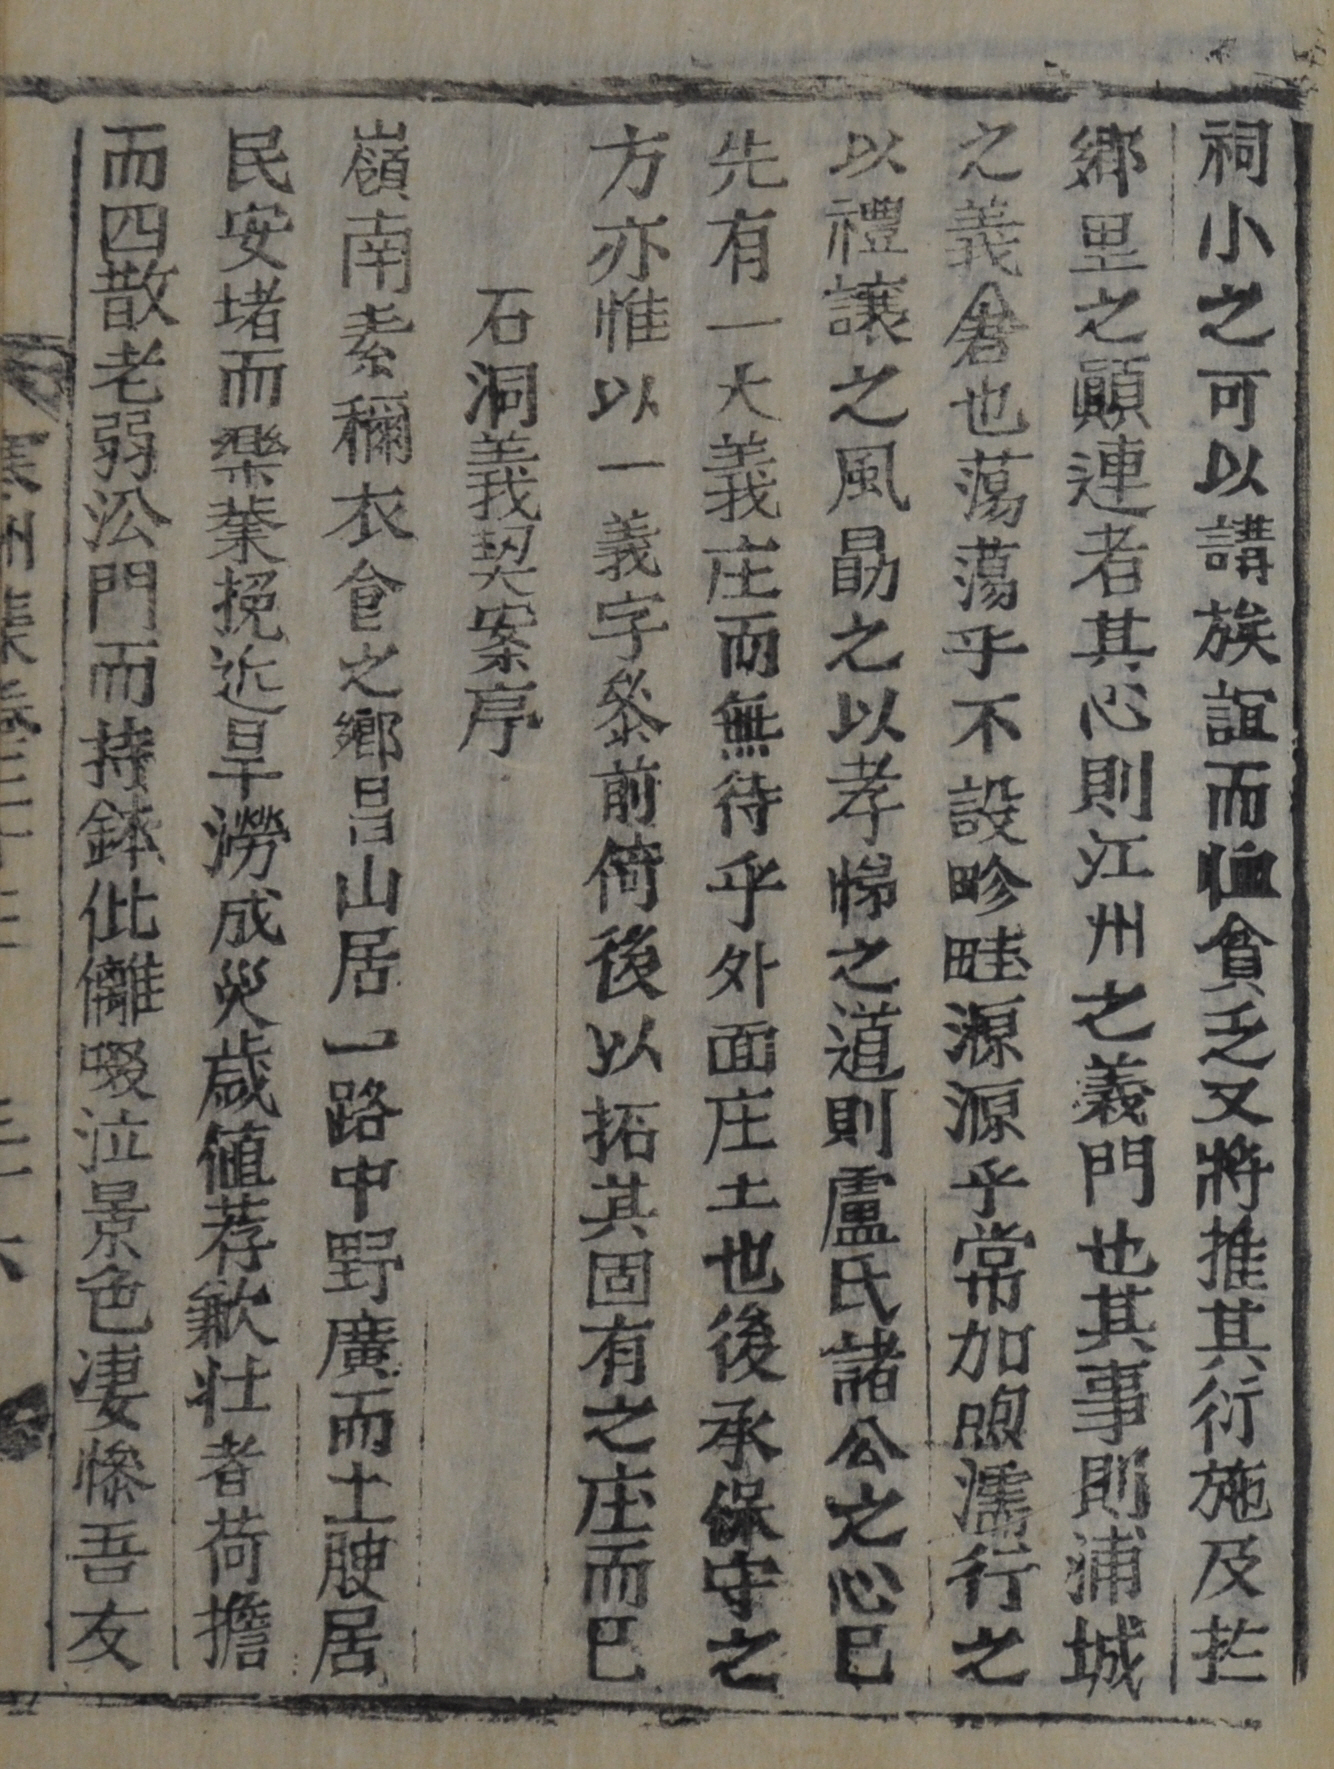 祠小之可以講族誼而恤貧乏又將推其衍施及於
鄉里之顚連者其心則江州之義門也其事則浦城
之義倉也蕩蕩乎不設畛畦源源乎常加煦濡行之
以禮讓之風勗之以孝悌之道則盧氏諸公之心已
先有一大義庄而無待乎外面庄土也後承保守之
方亦惟以一義字叅前倚後以拓其固有之庄而已
石洞義契案序
嶺南素稱衣食之鄉昌山居一路中野廣而土腴居
民安堵而樂業挽近旱澇成災歲値荐歉壯者荷擔
而四散老弱沿門而持鉢仳離啜泣景色凄慘吾友
寒州集卷三十三 三十六